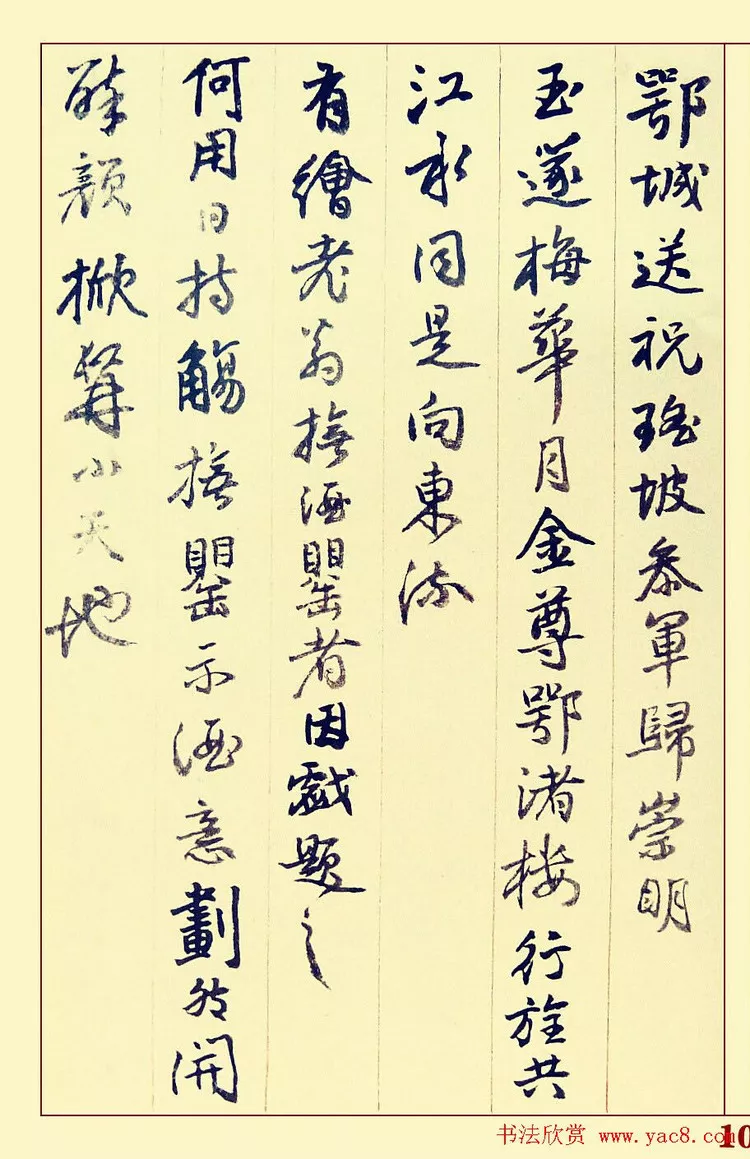 鄂城送祝瑤坡參軍歸崇明
玉邃梅華月金尊鄂渚樓行旌共
江水同是向東流
有繪老翁撫酒罌者因戲題之
何用日持觴撫罌示酒意劃然開
醉顏掀髯小天地
书法欣赏 www.yac8.com
10